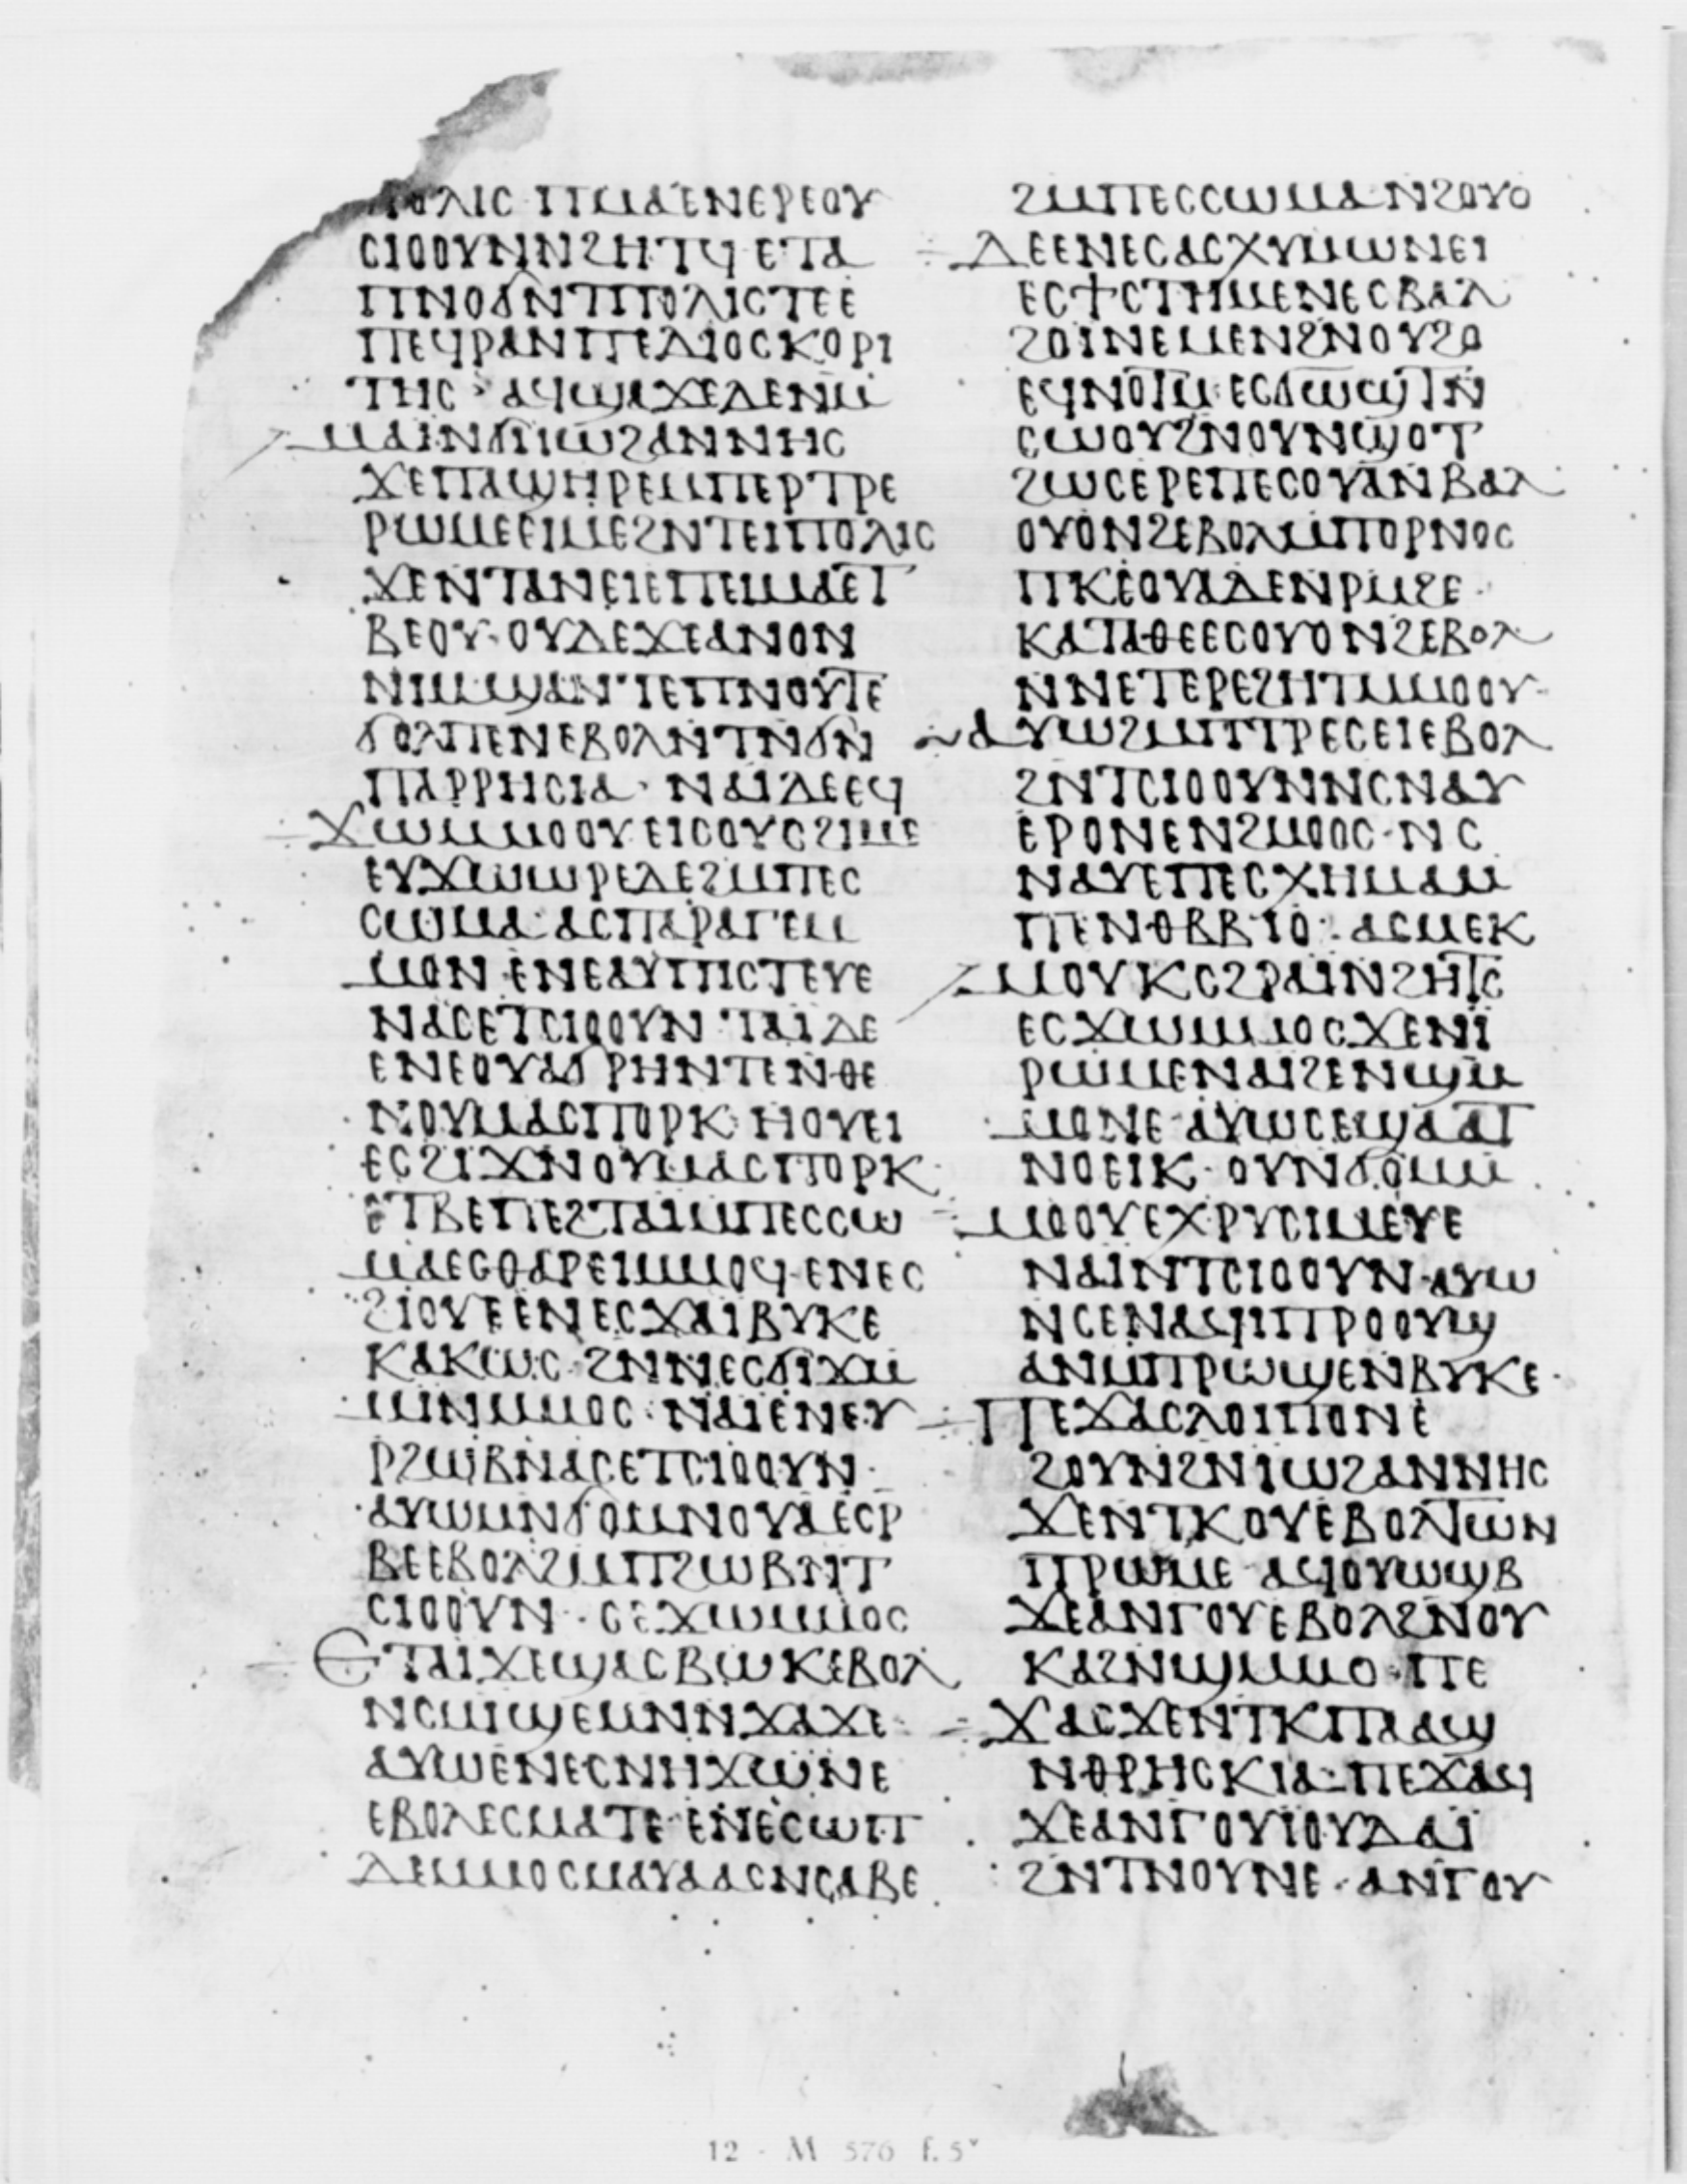 ⲡⲟⲗⲓⲥ ⲡⲙⲁ ⲉⲛⲉⲣⲉⲟⲩ
ⲥⲓⲟⲟⲩⲛ ⲛϩⲏⲧϥ ⲉⲧⲁ
ⲡⲛⲟϭ ⲛⲧⲡⲟⲗⲓⲥ ⲧⲉⲉ
ⲡⲉϥⲣⲁⲛ ⲡⲉ ⲇⲓⲟⲥⲕⲟⲣⲓ
ⲧⲏⲥ · ⲁϥϣⲁϫⲉ ⲇⲉ ⲛⲙ
ⲙⲁⲓ ⲛϭⲓ ⲓⲱϩⲁⲛⲛⲏⲥ
ϫⲉ ⲡⲁϣⲏⲣⲉ ⲙⲡⲉⲣⲧⲣⲉ
ⲣⲱⲙⲉ ⲉⲓⲙⲉ ϩⲛ ⲧⲉⲓⲡⲟⲗⲓⲥ
ϫⲉ ⲛⲧⲁⲛⲉⲓ ⲉⲡⲉⲓⲙⲁ ⲉⲧ
ⲃⲉ ⲟⲩ · ⲟⲩⲇⲉ ϫⲉ ⲁⲛⲟⲛ
ⲛⲓⲙ ϣⲁⲛⲧⲉ ⲡⲛⲟⲩⲧⲉ
ϭⲟⲗⲡⲛ ⲉⲃⲟⲗ ⲛⲧⲛϭⲛ
ⲡⲁⲣⲣⲏⲥⲓⲁ · ⲛⲁⲓ ⲇⲉ ⲉϥ
ϫⲱ ⲙⲙⲟⲟⲩ ⲉⲓⲥ ⲟⲩⲥϩⲓⲙⲉ
ⲉⲩϫⲱⲱⲣⲉ ⲇⲉ ϩⲙ ⲡⲉⲥ
ⲥⲱⲙⲁ · ⲁⲥⲡⲁⲣⲁⲅⲉ ⲙ
ⲙⲟⲛ · ⲉⲛⲉⲁⲩⲡⲓⲥⲧⲉⲩⲉ
ⲛⲁⲥ ⲉⲧⲥⲓⲟⲟⲩⲛ · ⲧⲁⲓ ⲇⲉ
ⲉⲛⲉⲟⲩⲁϭⲣⲏⲛ ⲧⲉ ⲛⲑⲉ
ⲛⲟⲩⲙⲁⲥⲡⲟⲣⲕ · ⲏ ⲟⲩⲉⲓ
ⲉⲥϩⲓϫⲛ ⲟⲩⲙⲁⲥⲡⲟⲣⲕ ·
ⲉⲧⲃⲉ ⲡⲉϩⲧⲁⲓ ⲙⲡⲉⲥⲥⲱ
ⲙⲁ ⲉⲥⲑⲁⲣⲉⲓ ⲙⲙⲟϥ · ⲉⲛⲉⲥ
ϩⲓⲟⲩⲉ ⲉⲛⲉⲥϫⲁⲓⲃⲩⲕⲉ
ⲕⲁⲕⲱⲥ · ϩⲛ ⲛⲉⲥϭⲓϫ ⲙ
ⲙⲓⲛ ⲙⲙⲟⲥ · ⲛⲁⲓ ⲉⲛⲉⲩ
ⲣϩⲱⲃ ⲛⲁⲥ ⲉⲧⲥⲓⲟⲟⲩⲛ ·
ⲁⲩⲱ ⲙⲛϭⲟⲙ ⲛⲟⲩⲁ ⲉⲥⲣ
ⲃⲉ ⲉⲃⲟⲗ ϩⲙ ⲡϩⲱⲃ ⲛⲧ
ⲥⲓⲟⲟⲩⲛ · ⲉⲥϫⲱ ⲙⲙⲟⲥ
ⲉⲧⲁⲓ ϫⲉ ϣⲁⲥⲃⲱⲕ ⲉⲃⲟⲗ
ⲛⲥⲙⲓϣⲉ ⲙⲛ ⲛϫⲁϫⲉ ·
ⲁⲩⲱ ⲉⲛⲉⲥⲛⲏϫ ⲱⲛⲉ
ⲉⲃⲟⲗ ⲉⲥⲙⲁⲧⲉ · ⲉⲛⲉⲥⲱⲡ
ⲇⲉ ⲙⲙⲟⲥ ⲙⲁⲩⲁⲁⲥ ⲛⲥⲁⲃⲉ
ϩⲙ ⲡⲉⲥⲥⲱⲙⲁ · ⲛϩⲟⲩⲟ
ⲇⲉ ⲉⲛⲉⲥⲁⲥⲭⲩⲙⲱⲛⲉⲓ
ⲉⲥϯⲥⲧⲏⲙ ⲉⲛⲉⲥⲃⲁⲗ
ϩⲟⲓⲛⲉ ⲙⲉⲛ ϩⲛ ⲟⲩϩⲟ
ⲉϥⲛⲟⲧⲙ · ⲉⲥϭⲱϣⲧ ⲛ
ⲥⲱⲟⲩ ϩⲛ ⲟⲩⲛϣⲟⲧ
ϩⲱⲥ ⲉⲣⲉ ⲡⲉⲥⲟⲩⲁ ⲛⲃⲁⲗ
ⲟⲩⲟⲛϩ ⲉⲃⲟⲗ ⲙⲡⲟⲣⲛⲟⲥ
ⲡⲕⲉⲟⲩⲁ ⲇⲉ ⲛⲣⲙϩⲉ ·
ⲕⲁⲧⲁ ⲑⲉ ⲉⲥⲟⲩⲟⲛϩ ⲉⲃⲟⲗ
ⲛⲛⲉⲧⲉⲣⲉ ϩⲏⲧ ⲙⲙⲟⲟⲩ ·
ⲁⲩⲱ ϩⲙ ⲡⲧⲣⲉⲥⲉⲓ ⲉⲃⲟⲗ
ϩⲛ ⲧⲥⲓⲟⲟⲩⲛ ⲛⲥⲛⲁⲩ
ⲉⲣⲟⲛ ⲉⲛϩⲙⲟⲟⲥ · ⲛⲥ
ⲛⲁⲩ ⲉⲡⲉⲥⲭⲏⲙⲁ ⲙ
ⲡⲉⲛⲑⲃⲃⲓⲟ · ⲁⲥⲙⲉⲕ
ⲙⲟⲩⲕⲥ ϩⲣⲁⲓ ⲛϩⲏⲧⲥ
ⲉⲥϫⲱ ⲙⲙⲟⲥ ϫⲉ ⲛⲓ
ⲣⲱⲙⲉ ⲛⲁⲓ ϩⲉⲛϣⲙ
ⲙⲟ ⲛⲉ · ⲁⲩⲱ ⲥⲉϣⲁⲁⲧ
ⲛⲟⲉⲓⲕ · ⲟⲩⲛϭⲟⲙ ⲙ
ⲙⲟⲟⲩ ⲉⲭⲣⲩⲥⲓⲙⲉⲩⲉ
ⲛⲁⲓ ⲛⲧⲥⲓⲟⲟⲩⲛ · ⲁⲩⲱ
ⲛⲥⲉⲛⲁϥⲓ ⲡⲣⲟⲟⲩϣ
ⲁⲛ ⲙⲡⲣⲱϣⲉ ⲛⲃⲩⲕⲉ ·
ⲡⲉϫⲁⲥ ⲗⲟⲓⲡⲟⲛ ⲉ
ϩⲟⲩⲛ ϩⲛ ⲓⲱϩⲁⲛⲛⲏⲥ
ϫⲉ ⲛⲧⲕ ⲟⲩⲉⲃⲟⲗ ⲧⲱⲛ
ⲡⲣⲱⲙⲉ · ⲁϥⲟⲩⲱϣⲃ
ϫⲉ ⲁⲛⲅ ⲟⲩⲉⲃⲟⲗ ϩⲛ ⲟⲩ
ⲕⲁϩ ⲛϣⲙⲙⲟ · ⲡⲉ
ϫⲁⲥ ϫⲉ ⲛⲧⲕ ⲡⲁ ⲁϣ
ⲛⲑⲣⲏⲥⲕⲓⲁ · ⲡⲉϫⲁϥ
ϫⲉ ⲁⲛⲅ ⲟⲩⲓⲟⲩⲇⲁⲓ
ϩⲛ ⲧⲛⲟⲩⲛⲉ · ⲁⲛⲅ ⲟⲩ
12 - M 576 f. 5ᵛ